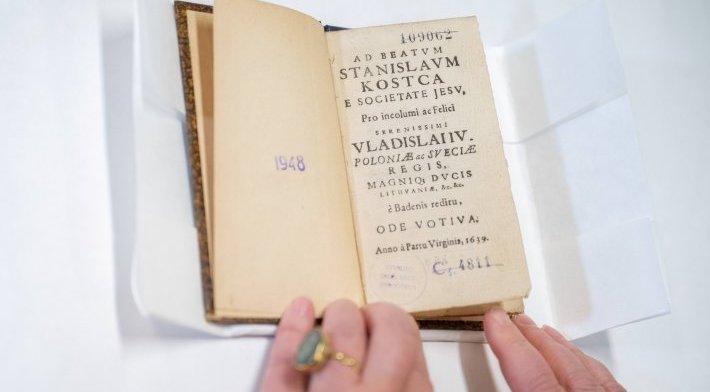 1948
109062
AD BEATVM
STANISLAVM
KOSTCA
E SOCIETATE JESV,
Pro incolumi ac Felici
SERENISSIMI
VLADISLAI IV.
POLONIÆ ac SVECIÆ
REGIS,
MAGNIQ; DVCIS
LITHVANIÆ, &c. &c.
è Badenis reditu,
ODE VOTIVA.
Anno à Partu Virginis, 1639.
C, 4811